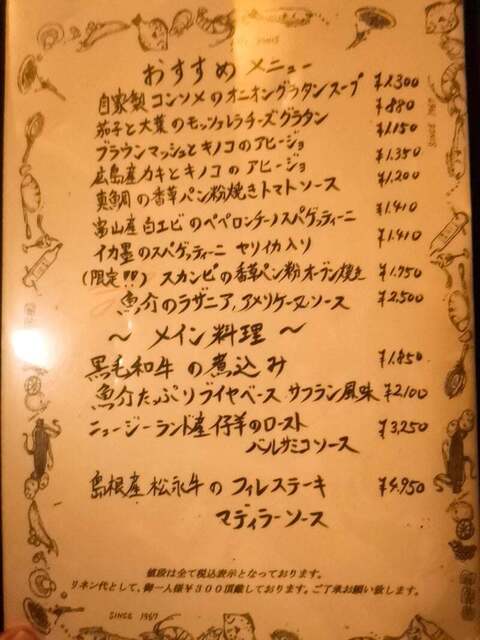 おすすめ メニュー
自家製 コンソメのオニオングラタンスープ ¥1,300
茄子と大葉のモッツァレラチーズグラタン ¥880
ブラウンマッシュとキノコのアヒージョ ¥1,150
広島産カキとキノコの アヒージョ ¥1,350
真鯛の香草パン粉焼きトマトソース ¥1,200
富山産白エビのペペロンチーノスパゲッティーニ ¥1,410
イカ墨のスパゲッティーニ ヤリイカ入り ¥1,410
(限定!!) スカンピの香草パン粉オーブン焼き ¥1,950
魚介のラザニア,アメリケーヌソース ¥2,500
～ メイン料理 ～
黒毛和牛 の煮込み ¥1,850
魚介たっぷりブイヤベース サフラン風味 ¥2,100
ニュージーランド産仔羊のロースト ¥3,250
バルサミコソース
島根産松永牛の フィレステーキ ¥4,950
マディラーソース
値段は全て税込表示となっております。
リネン代として、御一人様¥300頂戴しております。ご了承お願い致します。
SINCE 1967